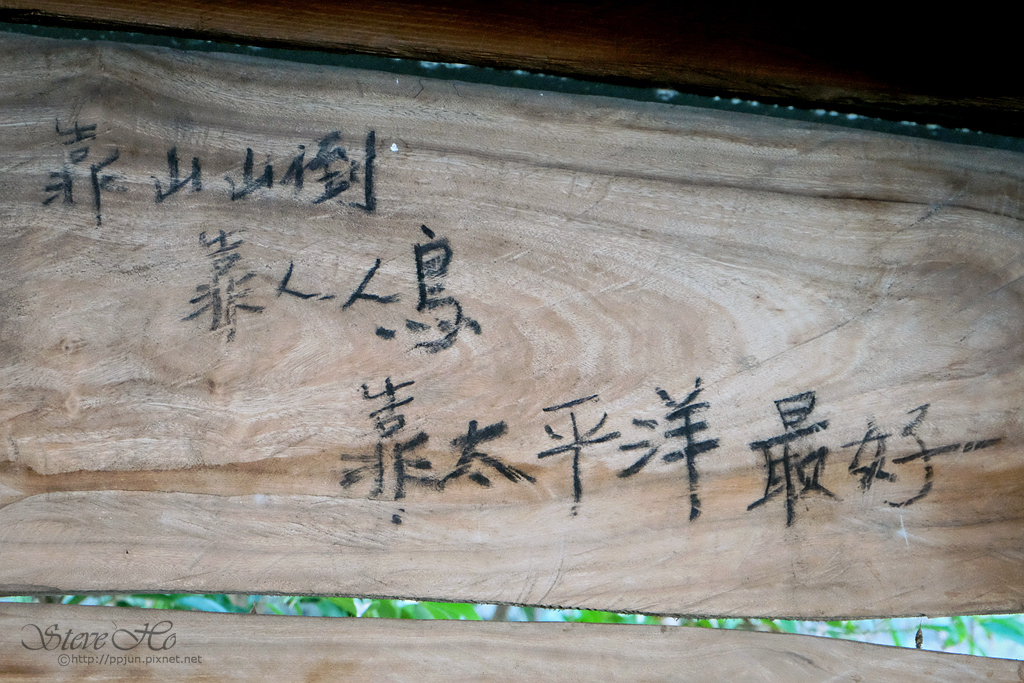 靠山山倒
靠人人鳥
靠太平洋最好
Steve Ho
©http://ppjun.pixnet.net